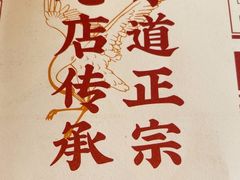 道正宗
店传承